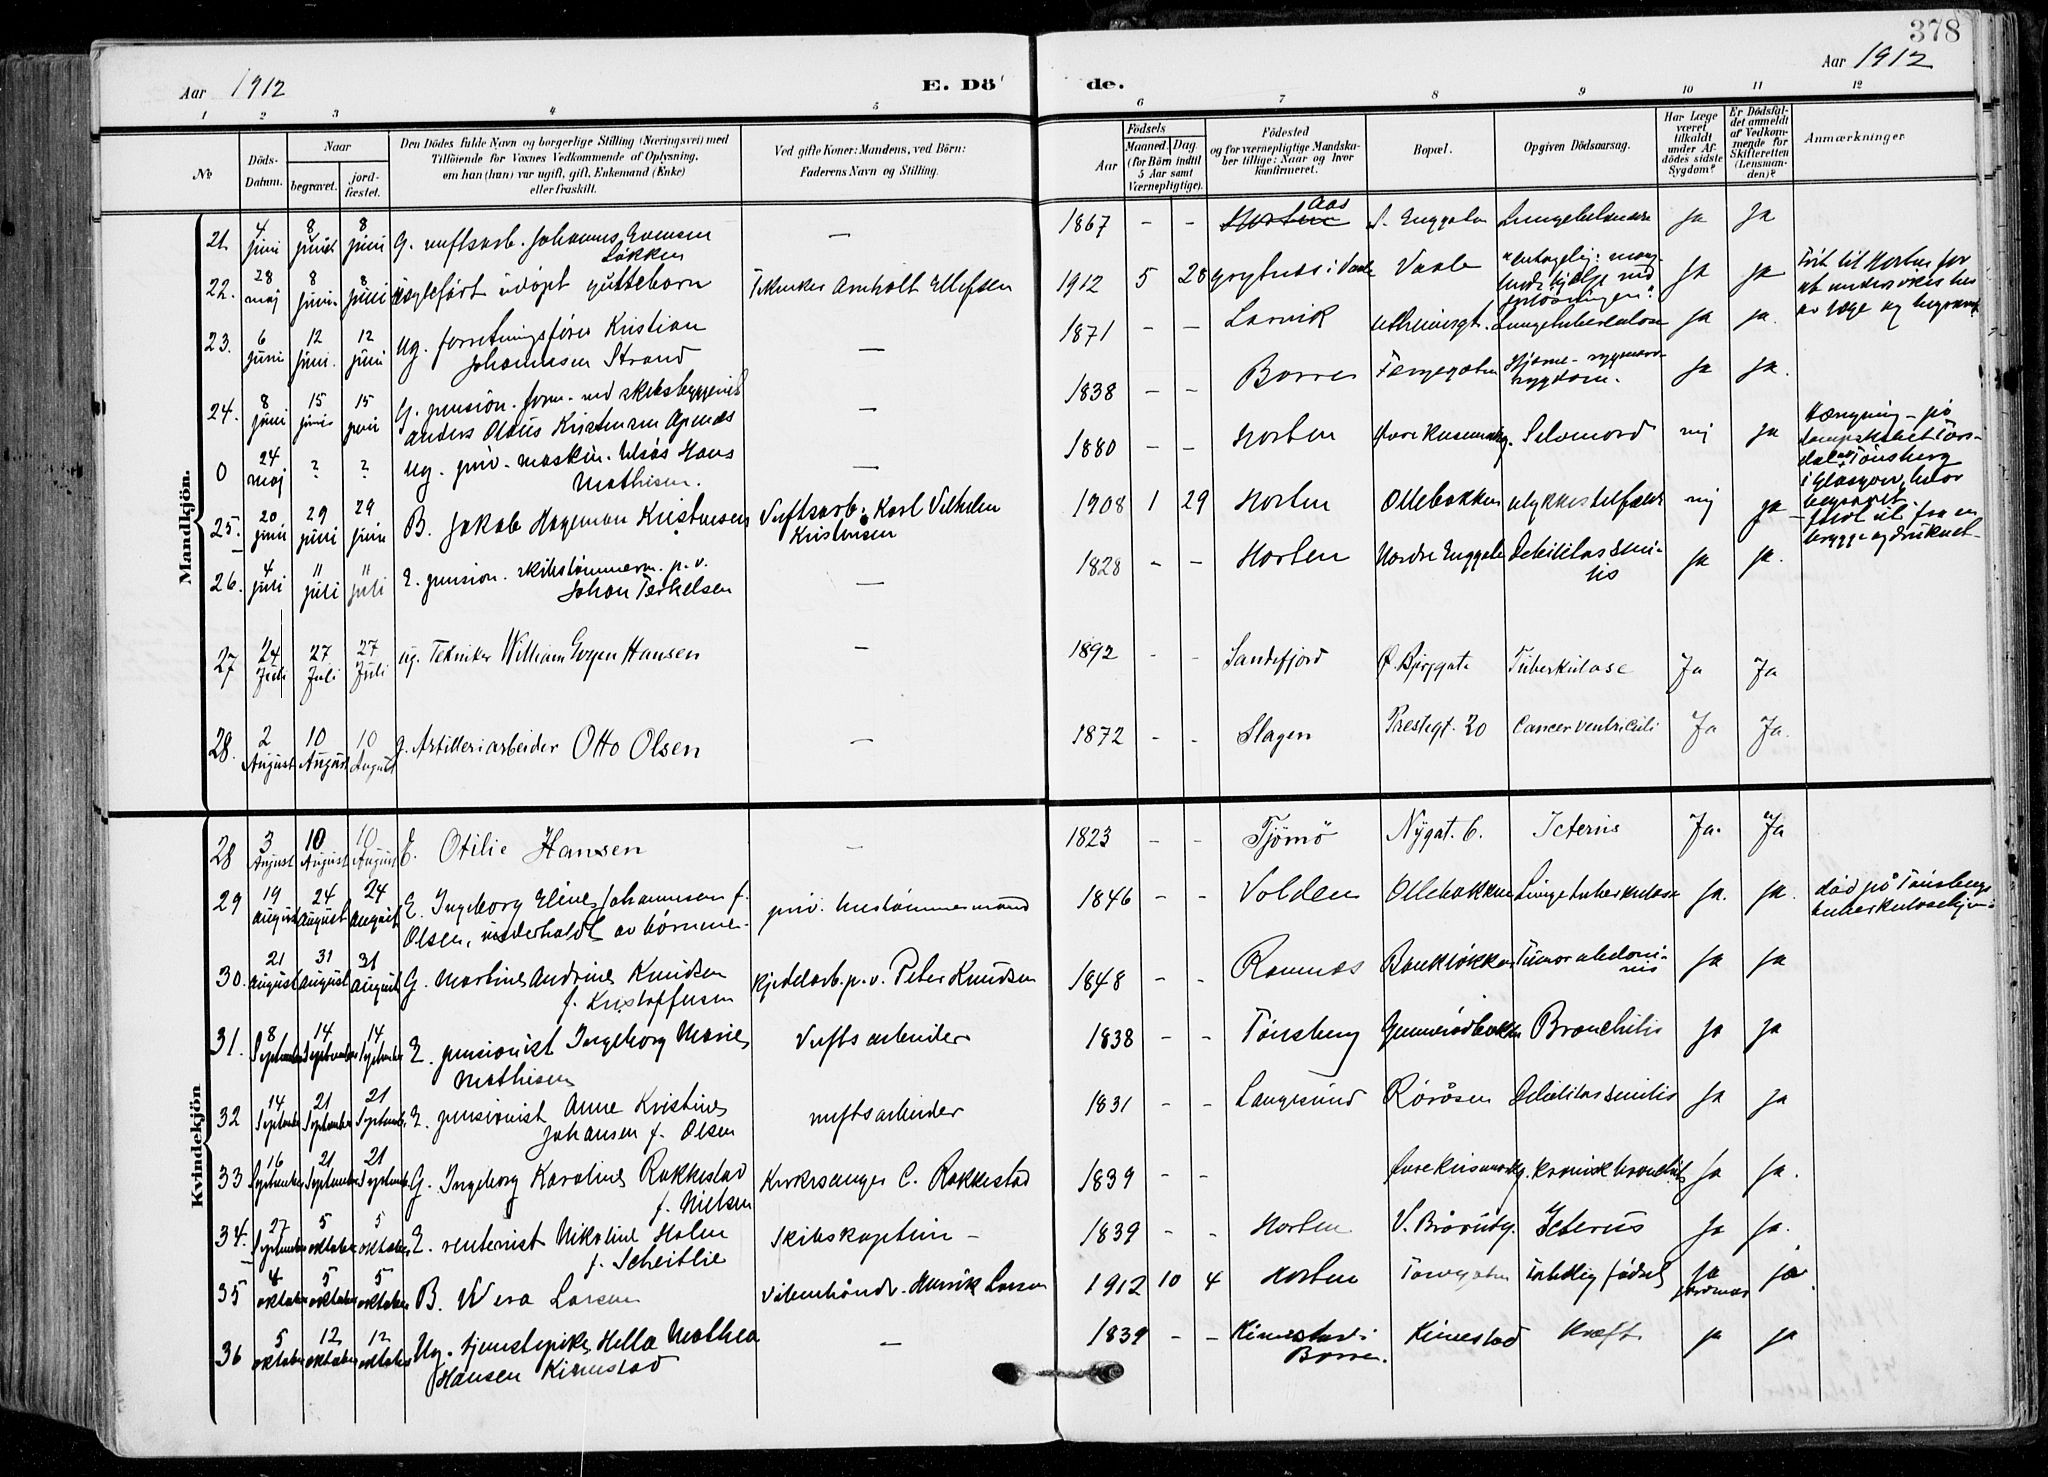 378
Aar 1912
E. Dö
de.
Aar 1912
1 2 3 4 5 6 7 8 9 10 11 12
No
Döds-Datum.
Naar
begravet.
jord-fæstet.
Den Dödes fulde Navn og borgerlige Stilling (Næringsvei) med
Tilföiende for Voxnes Vedkommende af Oplysning,
om han (hun) var ugift, gift, Enkemand (Enke)
eller fraskilt.
Ved gifte Koner: Mandens, ved Börn:
Faderens Navn og Stilling.
Födsels
Aar
Maaned.
Dag.
(for Börn indtil
5 Aar samt
Værnepligtige).
Födested
og for værnepligtige Mandska-
ber tillige: Naar og hvor
konfirmeret.
Bopæl.
Opgiven Dödsaarsag.
Har Læge
været
tilkaldt
under Af-
dödes sidste
Sygdom?
Er Dödsfal-
det anmeldt
af Vedkom-
mende for
Skifteretten
(Lensman-
den)?
Anmærkninger
Mandkjön.
21. 4 juni 8 juni 8 juni G. verftsarb. Johannes Evensen Løkken — 1867 - - Horten Aas S. Enggaten Lungetuberkulose Ja Ja
22. 28 maj 8 juni 8 juni udøpt guttebarn Tekniker Arnholt Ellefsen 1912 5 28 i Vaale Vaale Ja Ja
23. 6 juni 12 juni 12 juni Ug. forretningsfører Kristian Johannesen Strand — 1871 - - Larvik Lungetuberkulose Ja Ja.
24. 8 juni 15 juni 15 juni G. pension. form. ved skibsbyggeriet Anders Olaus Kristensen Apenæs — 1838 - - Borre Færgegaten Hjerne- rygmarv sygdom. Ja Ja.
0 24 maj ? ? Ug. priv. maskin. Hans Mathisen. — 1880 - - Horten Selvmord nej Ja Hængning - på dampskibet Tørsdal av Tønsberg i Glasgow, hvor begravet.
25. 20 juni 29 juni 29 juni B. Jakob Hageman Kristensen Verftsarb. Karl Vilhelm Kristensen 1908 1 29 Horten Ollebakken ulykkestilfælde nej ja — fløt ut fra en brygge og druknet
26. 4 juli 11 juli 11 juli E. pension. skibstømmerm. p.v. Johan Terkelsen — 1828 - - Horten Nordre Enggate Debilitas senilis Ja Ja.
27 24 Juli 27 Juli 27 Juli ug. Tekniker William Hansen - 1892 - - Sandefjord Ø. Bjerggate Tuberkulose Ja Ja
28. 2 August 10 August 10 August g. Artilleriarbeider Otto Olsen — 1872 - - Slagen Prestegt. 20 Cancer ventriculi Ja Ja.
Kvindekjön
28 3 August 10 August 10 August E. Otilie Hansen — 1823 - - Tjømø Nygat. 6. Icterus Ja. Ja
29 19 august 24 august 24 august E. Ingeborg Eline Johannesen f. Olsen, underholdt av børnene priv. hustømmermand 1846 - - Volden Ollebakken Lungetuberkulose Ja. Ja. død på Tønsberg tuberkulosehjem
30. 21 august 31 august 31 august G. Martine Andrine Knudsen f. Kristoffersen kjedelarb. p.v. Peter Knudsen 1848 - - Ramnæs Bankløkken Tumor abdominis Ja Ja
31. 8 September 14 September 14 September E. pensionist Ingeborg Marie Mathisen Verftsarbeider 1838 - - Tønsberg Bronchitis Ja Ja
32 14 September 21 September 21 September E. pensionist Anne Kristine Johansen f. Olsen verftsarbeider 1831 - - Langesund Røråsen Debilitas senilis Ja Ja
33 16 September 21 September 21 September G. Ingeborg Karoline Rakkestad f. Nielsen Kirkesanger C. Rakkestad 1839 - - kronisk bronchitis Ja Ja.
34. 27 September 5 oktober 5 oktober E. rentenist Nikoline Holm f. Scheitlie Skibskaptein - 1839 - - Horten V. Icterus Ja Ja.
35 4 oktober 5 oktober 5 oktober B. Wera Larsen Larsen 1912 10 4 Horten Torvgaten fødsel Ja jordmor ja.
36 5 oktober 12 oktober 12 oktober Ug. tjenestepike Hella Mathea Hansen Kirnestad — 1839 - - Kirnestad i Borre. Kirnestad Kræft ja ja